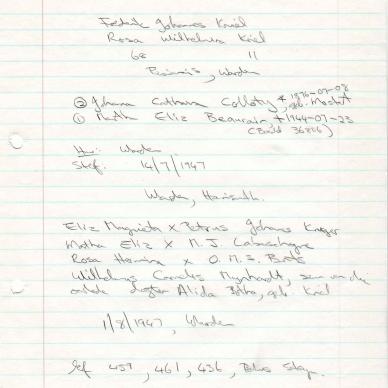 Frederik Johannes Kriel
Rosa Wilhelmina Kriel
68 11
, Warden
② Johanna Catharina * 1976-07-08
① Martha Eliz Beaurain + 1944-07-23
(Band 36806)
Huw: Warden
Sterf. 14/7/1947
Warden, Harrismith.
Eliz Magrieta x Petrus Johannes Kruger
Martha Eliz x M. J. Labuschagne
Rosa Hermina x O. M. S. Brits
Wilhelmus Cornelis Mynhardt, seun van die
oorlede dogter Alida Botha, geb. Kriel
1/8/1947, Warden
Get 459, 461, 436,